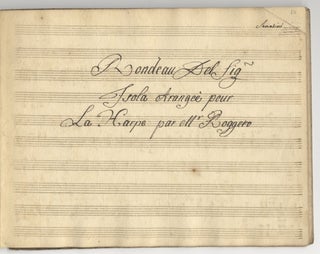 Rondeau Del Sig.r
Isola Arangéé pour
La Harpe par Mr Roggero